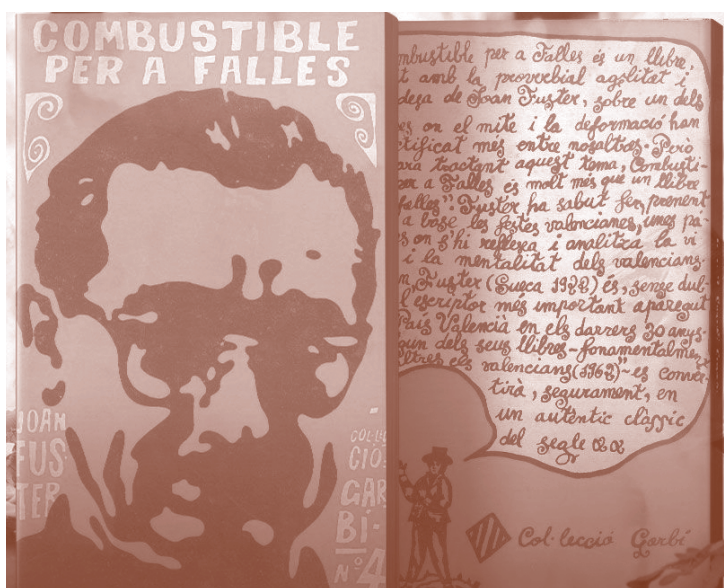 COMBUSTIBLE
PER A FALLES
JOAN
FUS
TER
COL·LEC
CIÓ
GAR
BÍ-
Nº4
mbustible per a Falles és un llibre,
t amb la proverbial agilitat i
desa de Joan Fuster, sobre un dels
es on el mite i la deformació han
ctificat més entre nosaltres. Però
ara tractant aquest tema, Combusti-
per a Falles és molt més que un llibre
falles". Fuster ha sabut fer, prenent
a base les festes valencianes, unes pà-
s on s'hi reflexa i analitza la vi
i la mentalitat dels valencians.
n Fuster (Sueca 1922) és, sense dub-
l escriptor més important aparegut
País Valencià en els darrers 30 anys.
gun dels seus llibres-fonamentalment
altres els valencians (1962)"-es conver-
tirà, segurament, en
un autèntic clàssic
del segle XX
Col·lecció Garbí